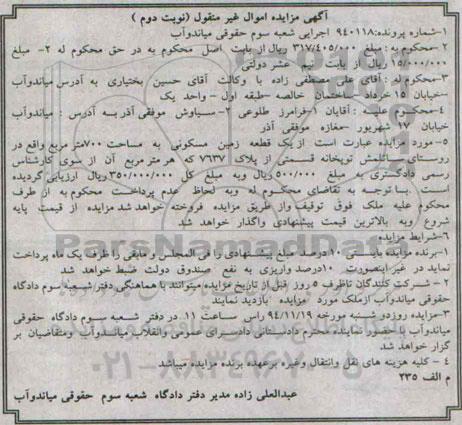 آگهی مزایده اموال غیر منقول (نوبت دوم )
۱-شماره پرونده:۹۴۰۱۱۸ اجرایی شعبه سوم حقوقی میاندوآب
۲-محکوم به : مبلغ ۳۱۷/۴۰۵/۰۰۰ ریال از بابت اصل محکوم به در حق محکوم له ۲- مبلغ
۱۵/۰۰۰/۰۰۰ ریال از بابت نیم عشر دولتی
۳-محکوم له : آقای علی مصطفی زاده با وکالت آقای حسین بختیاری به آدرس میاندوآب
-خیابان ۱۵ خرداد ساختمان خالصه -طبقه اول - واحد یک
۴-محکوم علیه : آقایان ۱-فرامرز طلوعی ۲-سیاوش موفقی آذر به آدرس : میاندوآب
خیابان ۱۷ شهریور -مغازه موفقی آذر
۵-مورد مزایده عبارت است از یک قطعه زمین مسکونی به مساحت ۷۰۰متر مربع واقع در
روستای ساتلمش توپخانه قسمتی از پلاک ۷۶۳۷ که هر متر مربع آن از سوی کارشناس
رسمی دادگستری به مبلغ ۵۰۰/۰۰۰ ریال وبه مبلغ کل ۳۵۰/۰۰۰/۰۰۰ریال ارزیابی گردیده
است . بسا توجه به تقاضای محکوم له وبه لحاظ عدم پرداخت محکوم به از طرف
محکوم علیه ملک فوق توقیف واز طریق مزایده فروخته خواهد شد مزایده از قیمت پایه
شروع وبه بالاترین قیمت پیشنهادی واگذار خواهد شد
۶-شرایط مزایده
۱-برنده مزایده بایستی ۱۰ درصد مبلغ پیشنهادی را فی المجلس و مابقی را ظرف یک ماه پرداخت
نماید در غیر اینصورت ۱۰درصد واریزی به نفع صندوق دولت ضبط خواهد شد
۲ - شرکت کنندگان تاظرف ۵ روز قبل از تاریخ مزایده میتوانند با هماهنگی دفتر شعبه سوم دادگاه
حقوقی میاندوآب ازملک مورد مزایده بازدید نمایند
۳-مزایده روزدو شنبه مورخه ۹۴/۱۱/۱۹ راس ساعت ۱۱ در دفتر شعبه سوم دادگاه حقوقی
میاندوآب باحضور نماینده محترم دادستانی دادسرای عمومی وانقلاب میاندوآب ومتقاضیان بر
گزار خواهد شد
۴ - کلیه هزینه های نقل وانتقال وغیره برعهده برنده مزایده میباشد
م الف ۲۳۵
عبدالعلی زاده مدیر دفتر دادگاه شعبه سوم حقوقی میاندوآب
ParsNamadData
۰۲۱-۸۸۳۴۹۶۷۰-۵